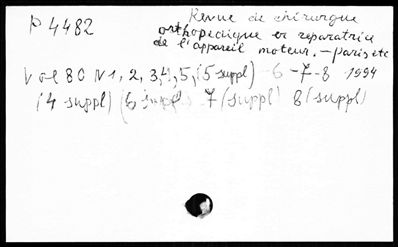 P 4482
Revue de chirurgie
orthopédique et réparatrice
de l'appareil moteur. - Paris etc
Vol 80 N 1, 2, 3, 4, 5, (5 suppl) - 6 - 7 - 8 1994
(4 suppl) (6 suppl) 7 (suppl) 8 (suppl)